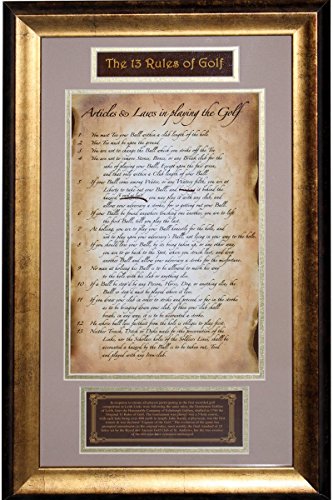 The 13 Rules of Golf
Articles & Laws in playing the Golf
1 You must Tee your Ball within a club length of the hole.
2 Your Tee must be upon the ground.
3 You are not to change the Ball which you strike off the Tee.
4 You are not to remove Stones, Bones, or any Break club for the
sake of playing your Ball, Except upon the fair Green,
and that only within a Club length of your Ball.
5 If your Ball come among Water, or any Watery filth, you are at
Liberty to take out your Ball, and behind the
hazard, you may play it with any club, and
allow your adversary a stroke, for so getting out your Ball.
6 If your Balls be found anywhere touching one another, you are to lift
the first Ball, till you play the last.
7 At holeing, you are to play your Ball honestly for the hole, and
not to play upon your adversary's Ball, not lying in your way to the hole.
8 If you should lose your Ball, by its being taken up, or any other way,
you are to go back to the Spot, where you struck last, and drop
another Ball and allow your adversary a stroke for the misfortune.
9 No man at holeing his Ball is to be allowed to mark his way
to the hole with his club or any thing else.
10 If a Ball be stop'd by any Person, Horse, Dog, or anything else, the
Ball so stop'd must be played where it lyes.
11 If you draw your club in order to strike and proceed so far in the stroke
as to be bringing down your club; if then your Club shall
break, in any way, it is to be accounted a stroke.
12 He whose ball lyes farthest from the hole is obliged to play first.
13 Neither Trench, Ditch or Dyke made for the preservation of the
Links, nor the Scholars' holes or the Soldiers Lines, shall be
accounted a hazard but the Ball is to be taken out, Teed
and played with any Iron club.